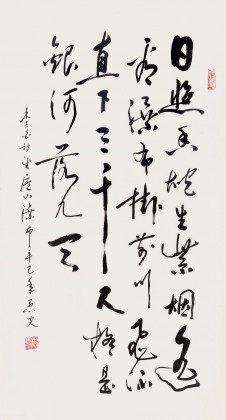 日照香炉生紫烟遥
看瀑布挂前川飞流
直下三千尺疑是
银河落九天
李白诗望庐山瀑布辛巳年